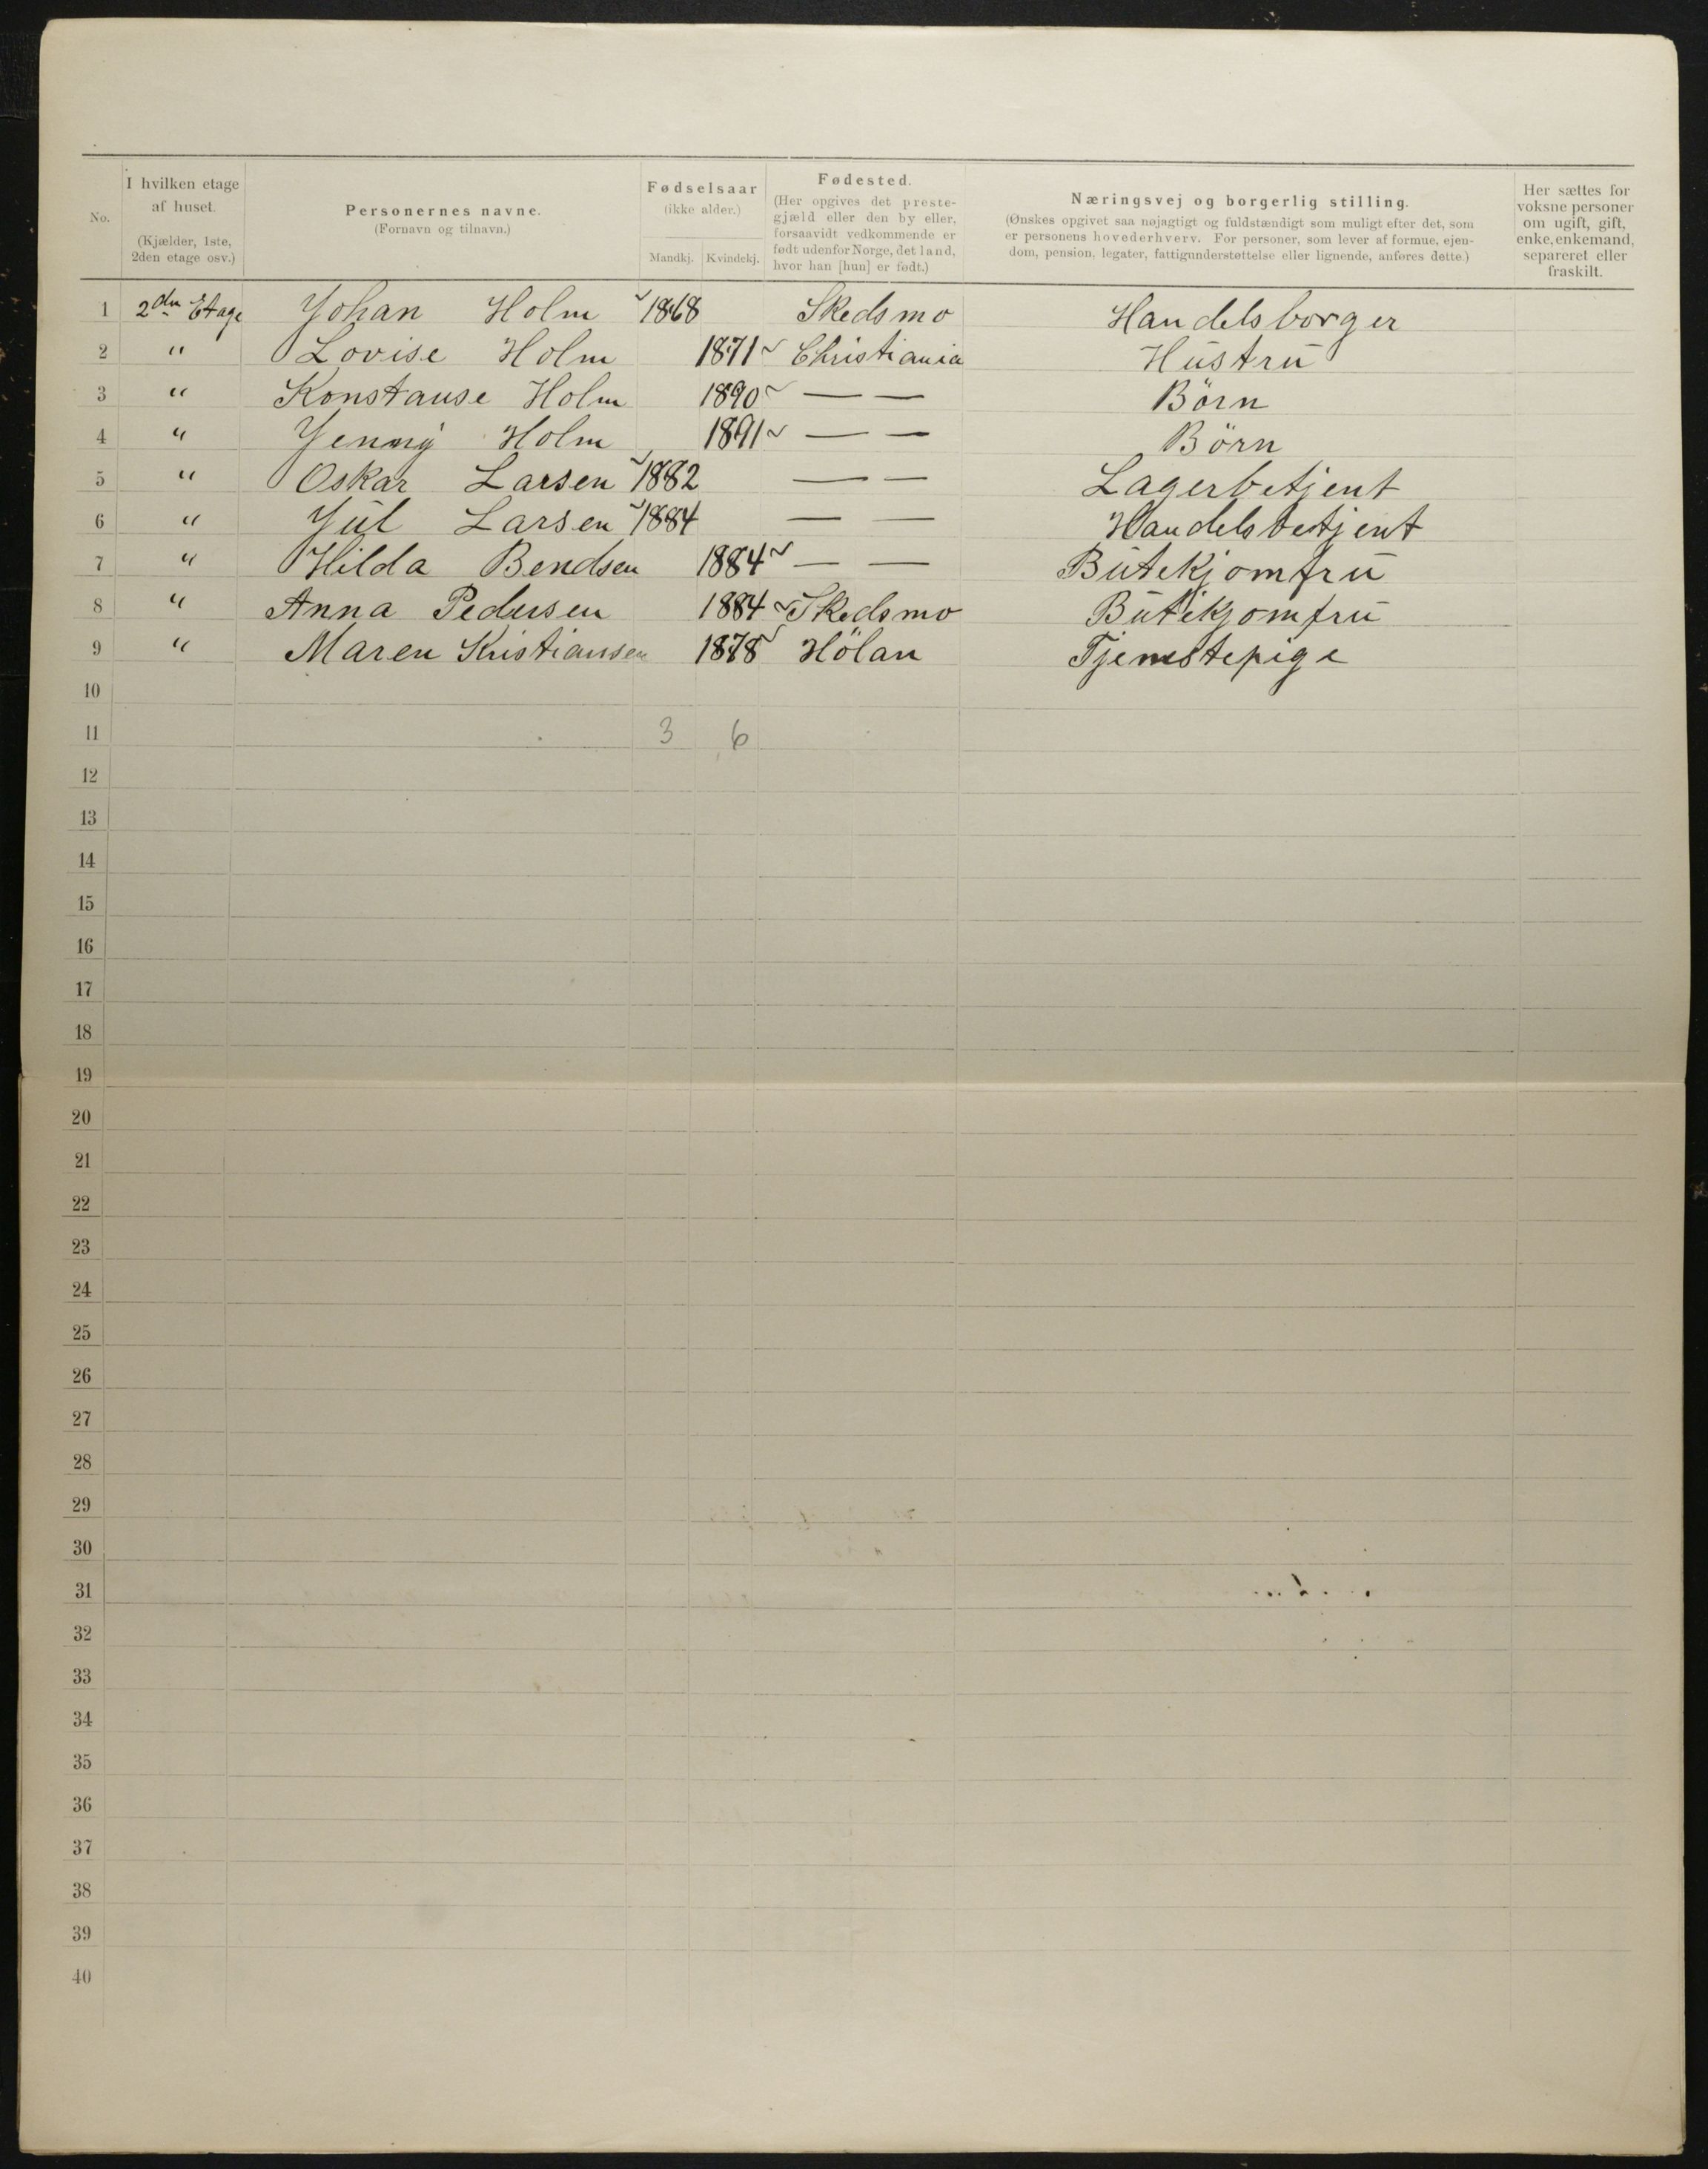 No.
I hvilken etage af huset.
(Kjælder, 1ste, 2den etage osv.)
Personernes navne.
(Fornavn og tilnavn.)
Fødselsaar
(ikke alder.)
Mandkj. Kvindekj.
Fødested.
(Her opgives det preste-
gjæld eller den by eller,
forsaavidt vedkommende er
født udenfor Norge, det land,
hvor han [hun] er født.)
Næringsvej og borgerlig stilling.
(Ønskes opgivet saa nøjagtigt og fuldstændigt som muligt efter det, som
er personens hovederhverv. For personer, som lever af formue, ejen-
dom, pension, legater, fattigunderstøttelse eller lignende, anføres dette.)
Her sættes for
voksne personer
om ugift, gift,
enke, enkemand,
separeret eller
fraskilt.
1 2den Etage Johan Holm 1868 Skedsmo Handelsborger
2 " Lovise Holm 1871 Christiania Hustru
3 " Konstanse Holm 1890 — — Börn
4 " Jenny Holm 1891 — — Börn
5 " Oskar Larsen 1882 — — Lagerbetjent
6 " Jul Larsen 1884 — — Handelsbetjent
7 " Hilda Bendsen 1884 — — Butekjomfru
8 " Anna Pedersen 1884 Skedsmo Butikjomfru
9 " Maren Kristiansen 1878 Hölan Tjenestepige
10
11 3 6
12
13
14
15
16
17
18
19
20
21
22
23
24
25
26
27
28
29
30
31
32
33
34
35
36
37
38
39
40